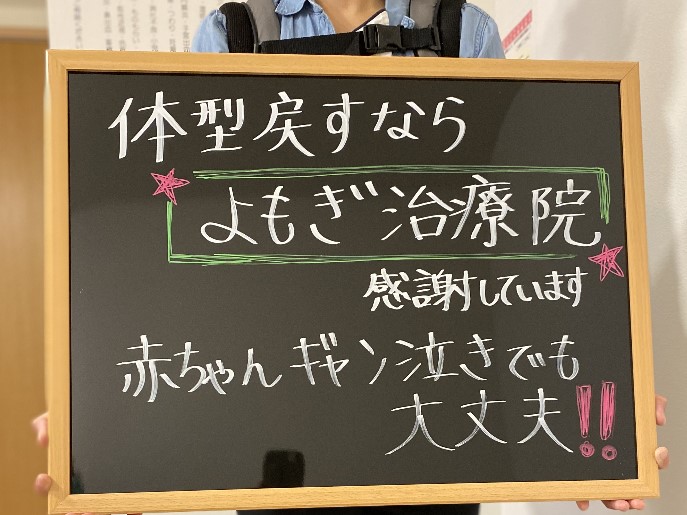 体型戻すなら
よもぎ治療院
感謝しています
赤ちゃんギャン泣きでも
大丈夫!!